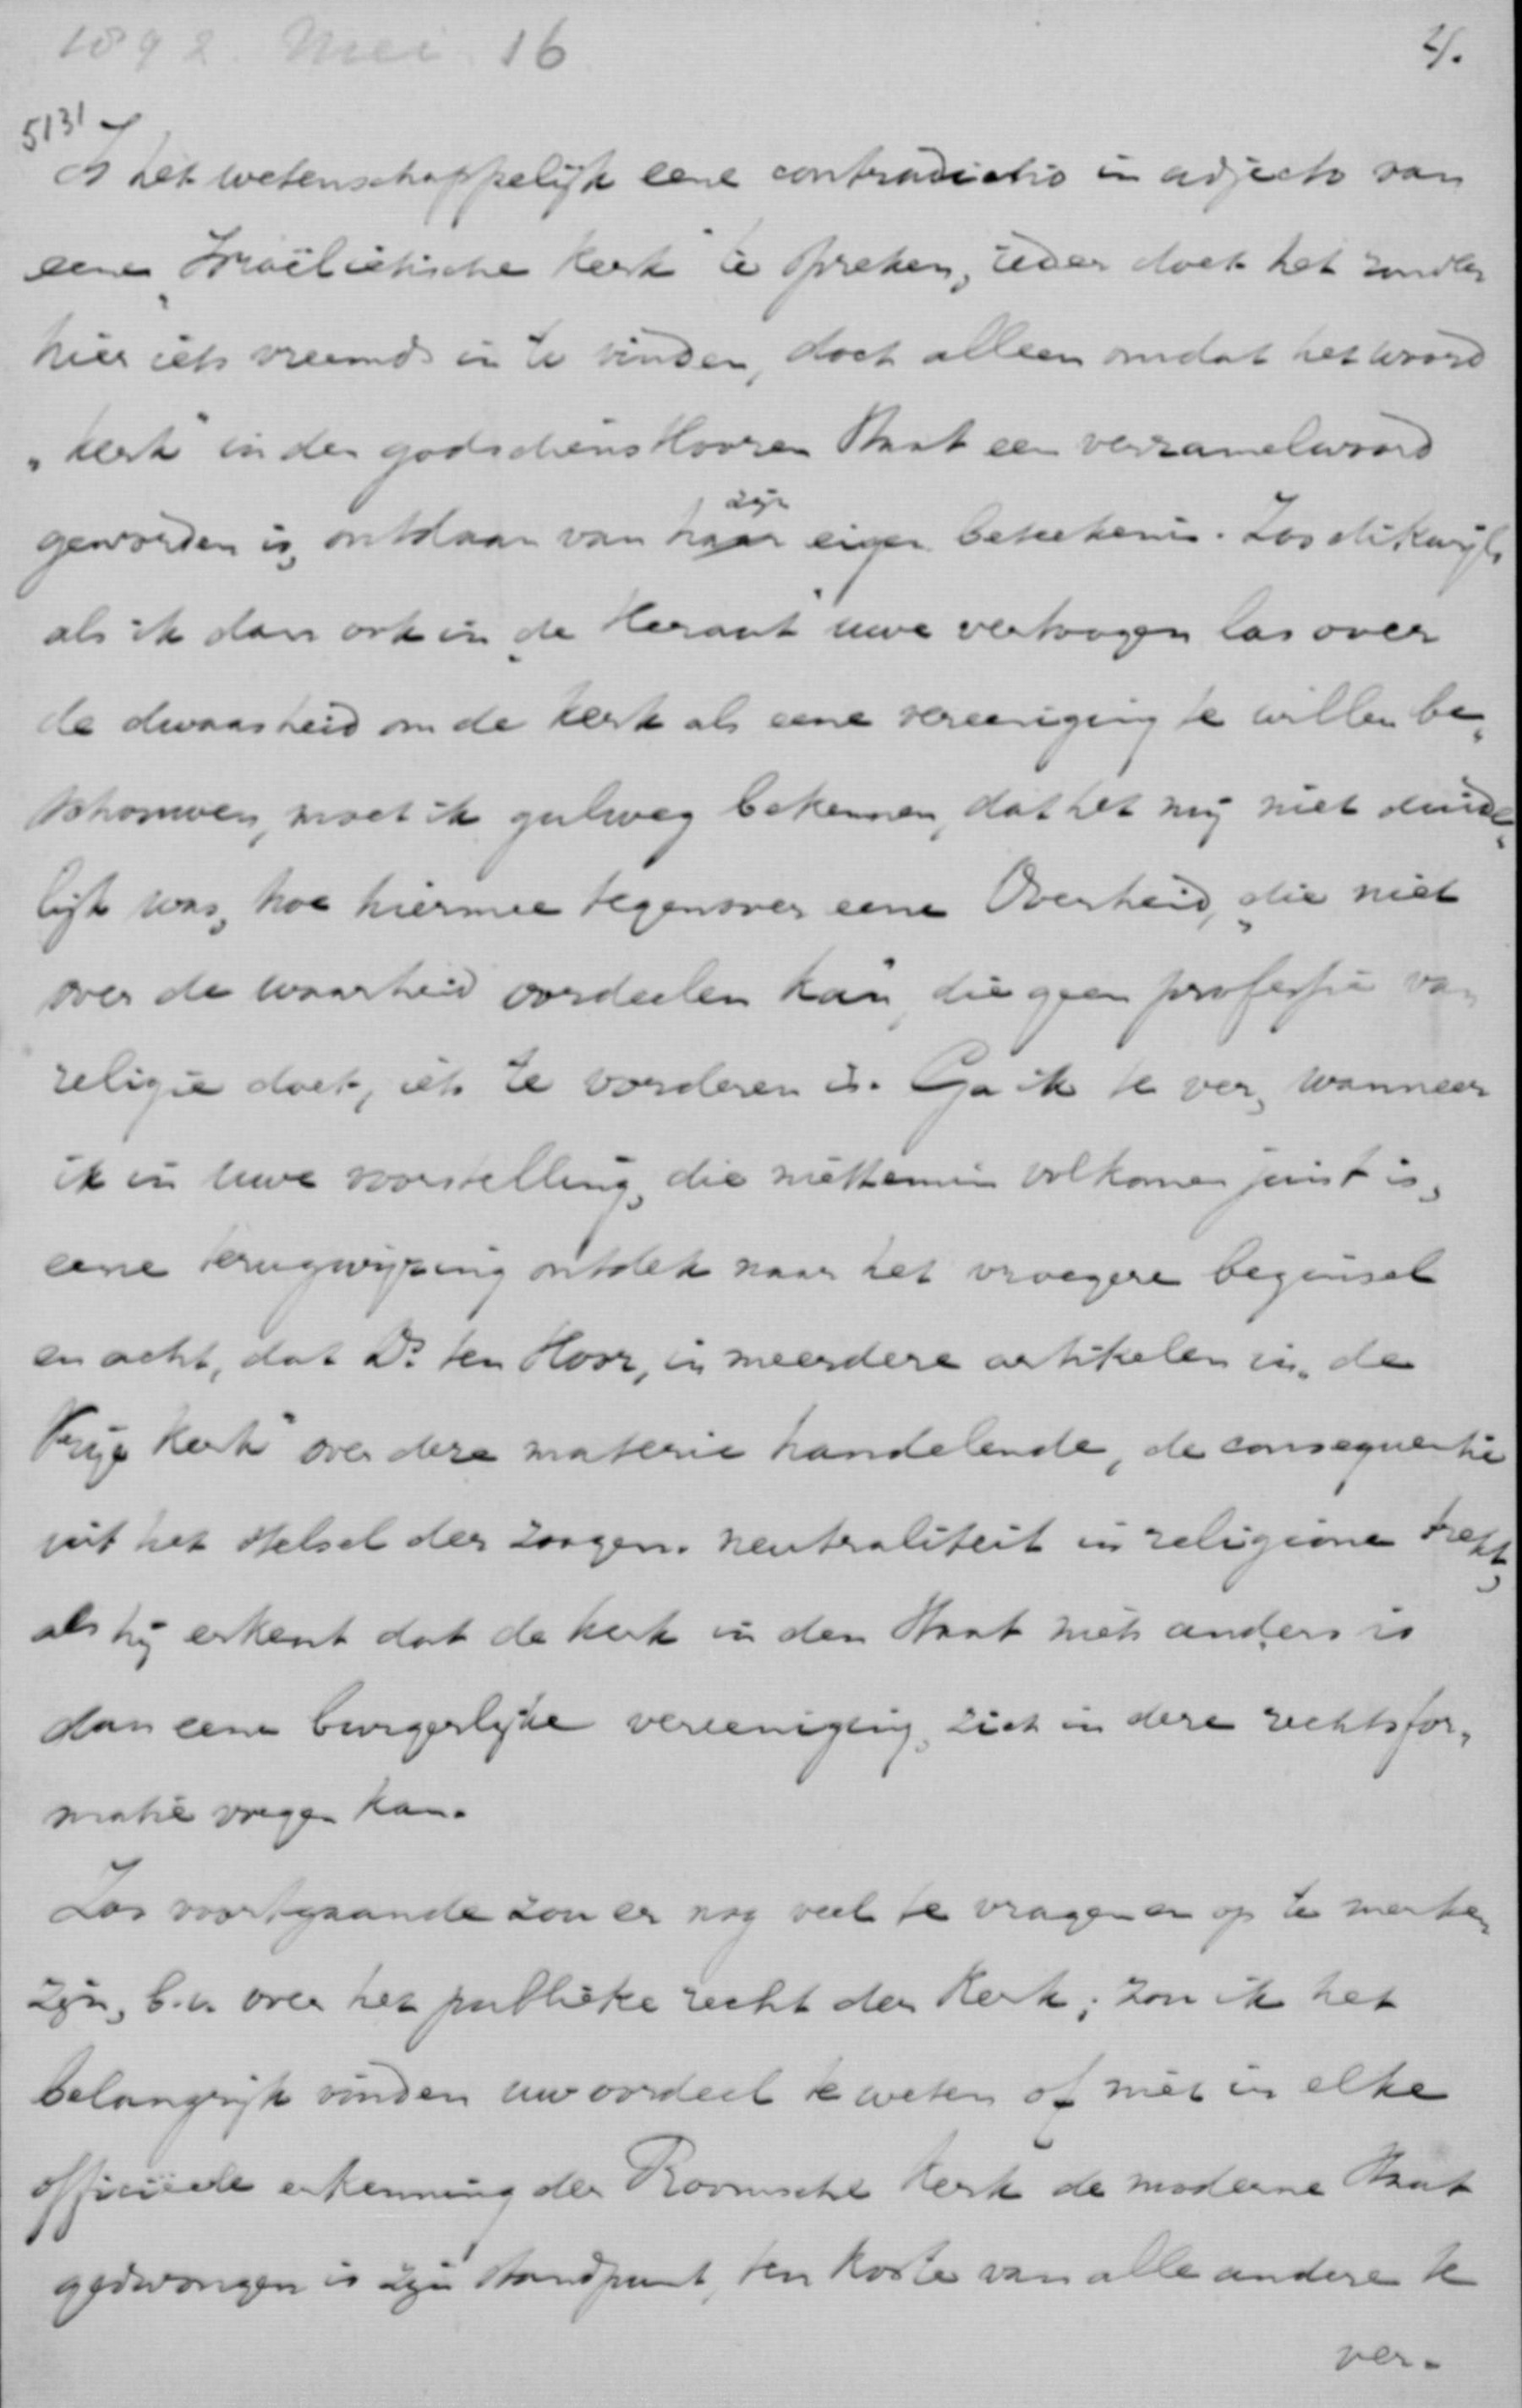 1892 Mei 16
4.
5131
Is het wetenschappelijk eene contradictio in adjecto van
eene „Israëlietische Kerk” te spreken, ieder doet het zonder
hier iets vreemds in te vinden, doch alleen omdat het woord
„kerk” in den godsdienstloozen Staat een verzamelwoord
geworden is, ontdaan van haar zijn eigen beteekenis. Zoo dikwijls
als ik dan ook in „de Heraut” uwe vertoogen las over
de dwaasheid om de Kerk als eene vereeniging te willen be„
schouwen, moet ik gulweg bekennen, dat het mij niet duide„
lijk was, hoe hiermee tegenover eene Overheid, „die niet
over de waarheid oordeelen kan”, die geen professie van
religie doet, iets te vorderen is. Ga ik te ver, wanneer
ik in uwe voorstelling, die niettemin volkomen juist is,
eene terugwijzing ontdek naar het vroegere beginsel
en acht, dat Ds. ten Hoor, in meerdere artikelen in „de
Vrije Kerk” over deze materie handelende, de consequentie
uit het stelsel der zoogen. neutraliteit in religione trekt,
als hij erkent dat de kerk in den Staat niets anders is
dan eene burgerlijke vereeniging, zich in deze rechtsfor„
matie voegen kan.
Zoo voortgaande zou er nog veel te vragen en op te merken
zijn, b.v. over het publieke recht der Kerk; zou ik het
belangrijk vinden uw oordeel te weten of niet in elke
officiëele erkenning der Roomsche Kerk de moderne Staat
gedwongen is zijn standpunt, ten koste van alle andere te
ver-